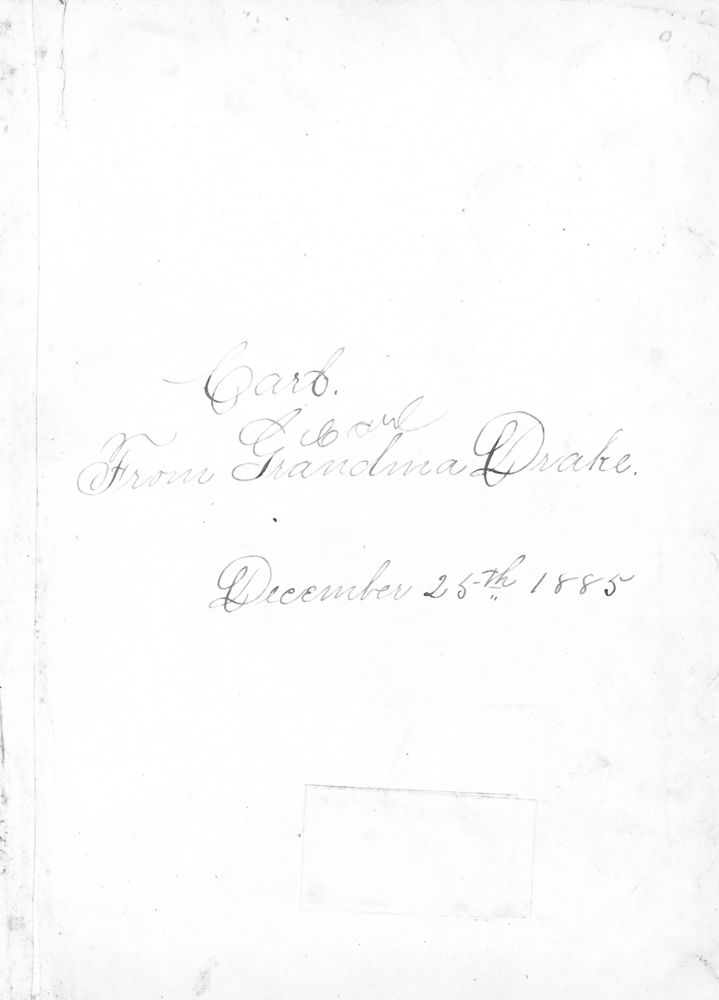 Carl.
Carl
From Grandma Drake.
December 25th 1885